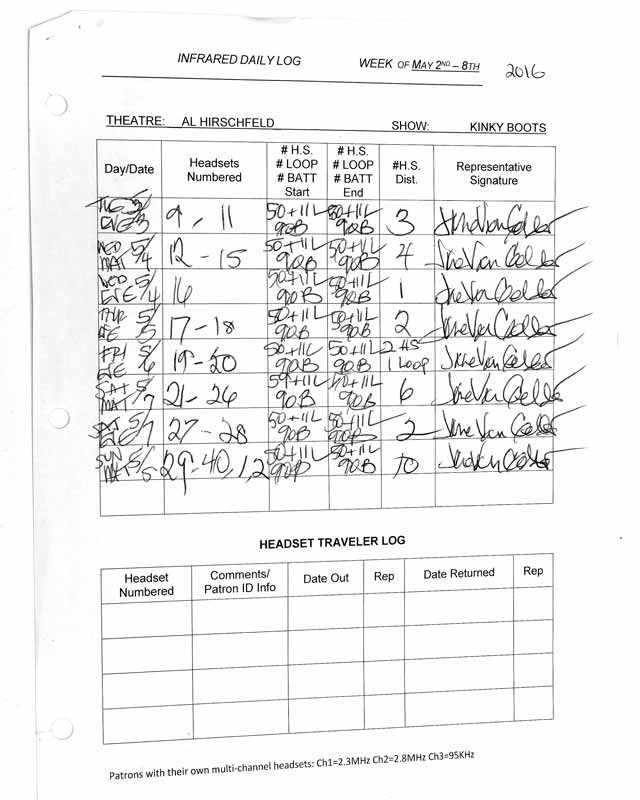 INFRARED DAILY LOG WEEK OF MAY 2ND – 8TH 2016
THEATRE: AL HIRSCHFELD SHOW: KINKY BOOTS
Day/Date Headsets Numbered # H.S. # LOOP # BATT Start # H.S. # LOOP # BATT End #H.S. Dist. Representative Signature
TUE 5/3 EVE 9 - 11 50+11L 90B 50+11L 90B 3
WED 5/4 MAT 12 - 15 50+11L 90B 50+11L 90B 4
WED 5/4 EVE 16 50+11L 90B 50+11L 90B 1
THU 5/5 EVE 17-18 50+11L 90B 50+11L 90B 2
FRI 5/6 EVE 19-20 50+11L 90B 50+11L 90B 2 HS 1 LOOP
SAT 5/7 MAT 21-26 50+11L 90B 50+11L 90B 6
SAT 5/7 EVE 27-28 50+11L 90B 50+11L 90B 2
SUN MAT 29-40, 12 50+11L 90B 50+11L 90B 10
HEADSET TRAVELER LOG
Headset Numbered Comments/ Patron ID Info Date Out Rep Date Returned Rep
Patrons with their own multi-channel headsets: Ch1=2.3MHz Ch2=2.8MHz Ch3=95KHz